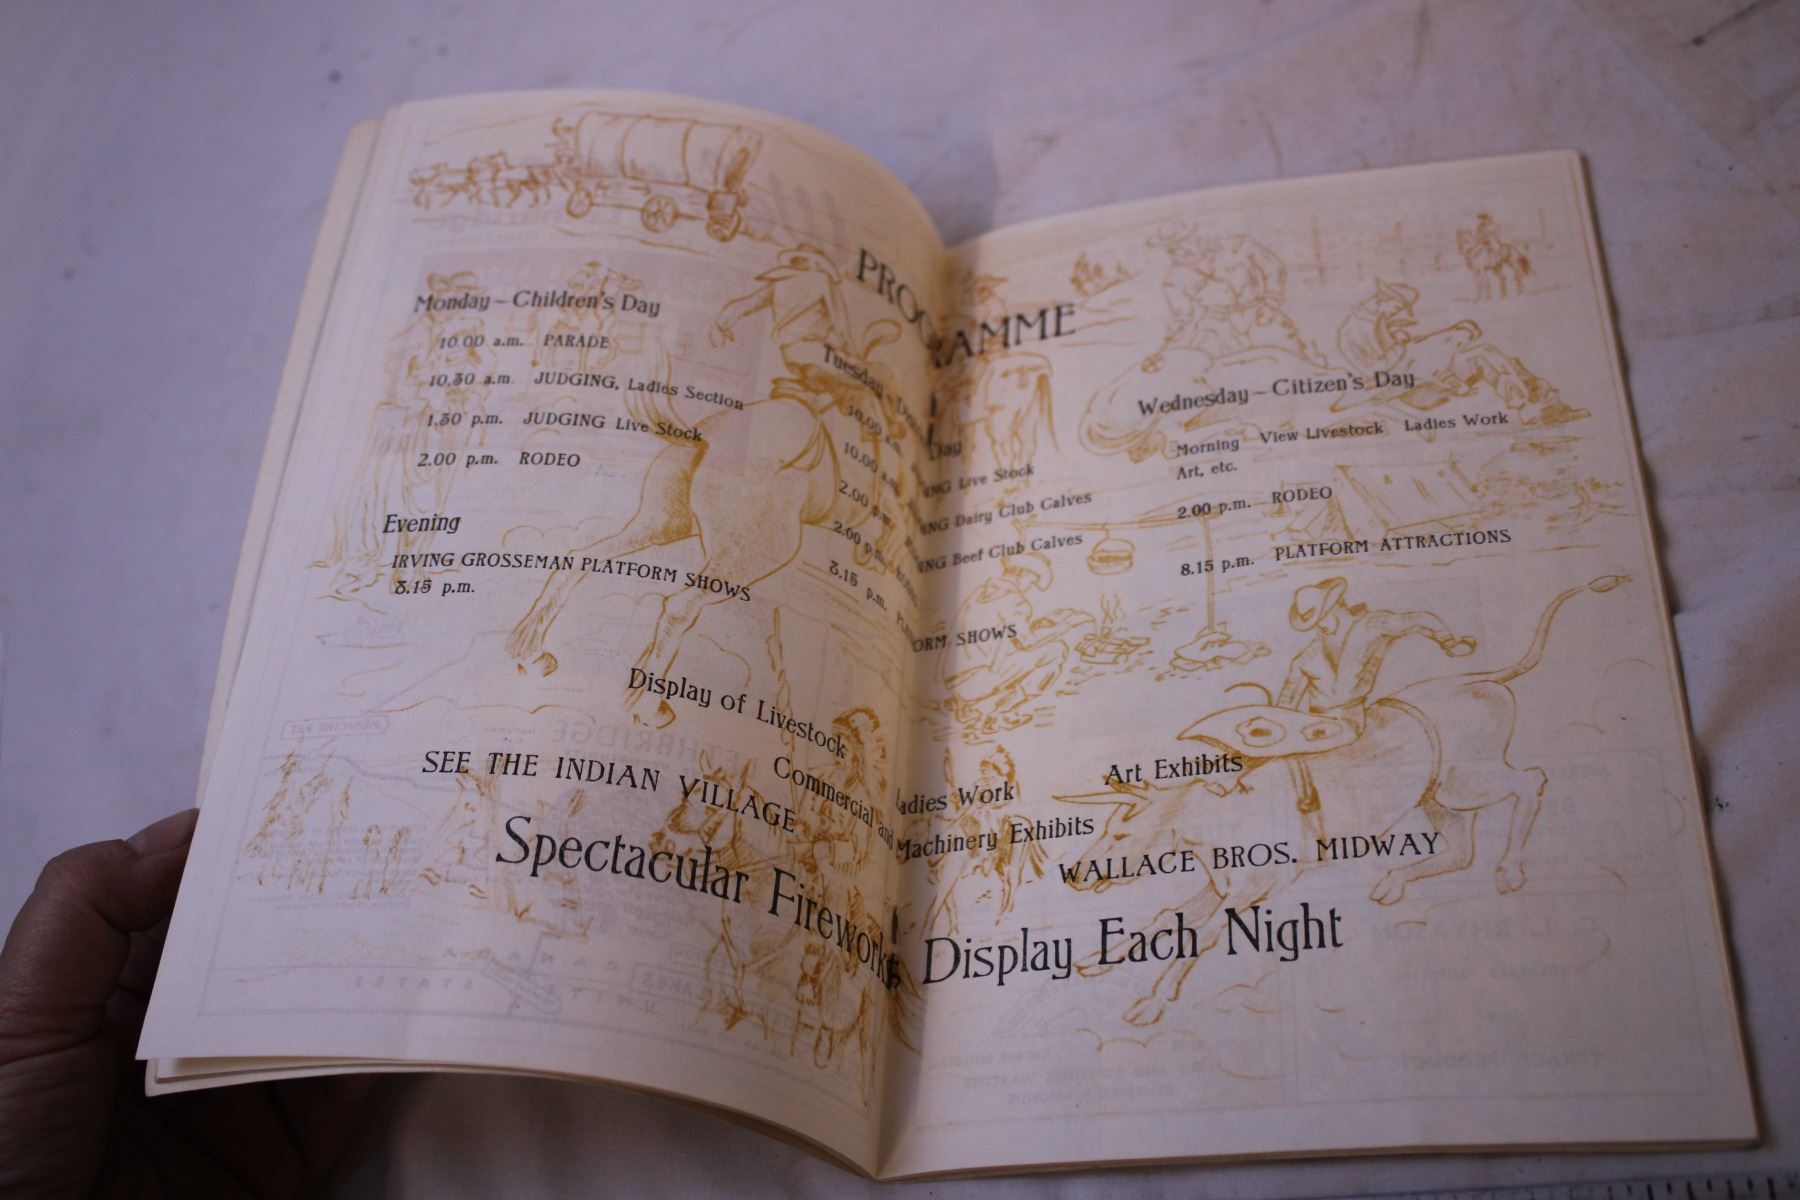 PROGRAMME
Monday – Children's Day
10.00 a.m. PARADE
10.30 a.m. JUDGING, Ladies Section
1.30 p.m. JUDGING Live Stock
2.00 p.m. RODEO
Evening
IRVING GROSSEMAN PLATFORM SHOWS
8.15 p.m.
Tuesday – Day
10.00 a.m. Live Stock
10.00 a.m. Dairy Club Calves
2.00 p.m. Beef Club Calves
2.00 p.m.
8.15 p.m. PLATFORM SHOWS
Wednesday – Citizen's Day
Morning View Livestock Ladies Work
Art, etc.
2.00 p.m. RODEO
8.15 p.m. PLATFORM ATTRACTIONS
Display of Livestock Ladies Work Art Exhibits
Commercial and Machinery Exhibits
SEE THE INDIAN VILLAGE WALLACE BROS. MIDWAY
Spectacular Fireworks Display Each Night